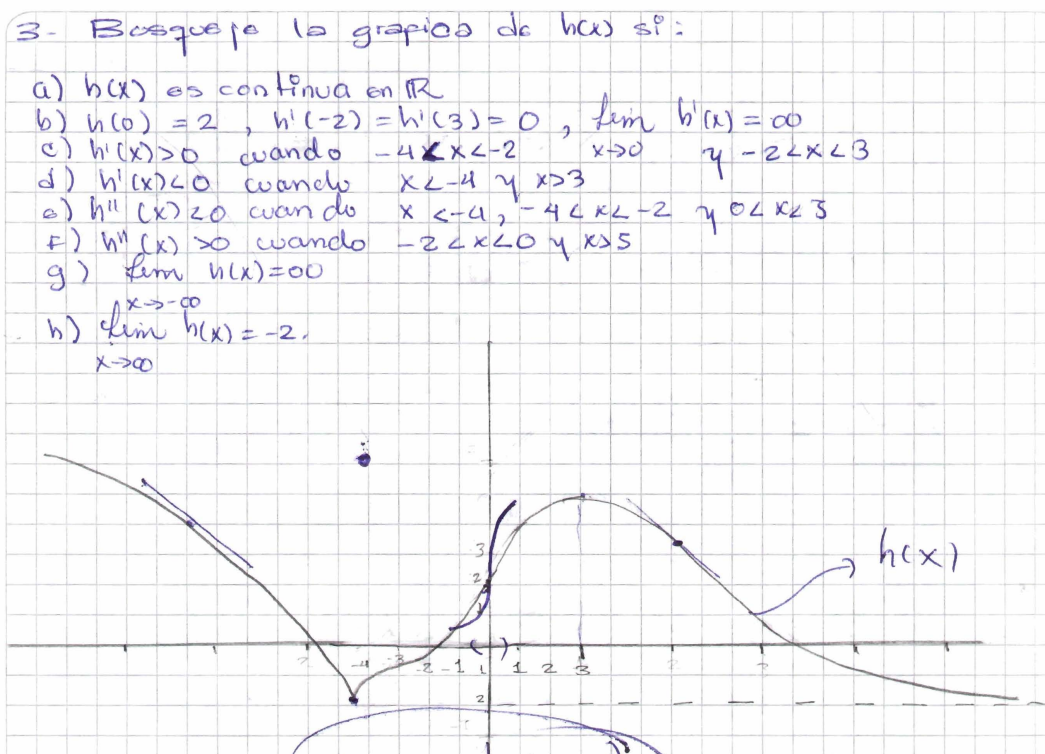 3- Bosqueje la grafica de h(x) si:
a) h(x) es continua en ℝ
b) h(0) = 2, h'(-2) = h'(3) = 0, lim h'(x) = ∞
x→0
c) h'(x)>0 cuando -4<x<-2 y -2<x<3
d) h'(x)<0 cuando x<-4 y x>3
e) h''(x)<0 cuando x<-4, -4<x<-2 y 0<x<3
f) h''(x)>0 cuando -2<x<0 y x>5
g) lim h(x)=∞
x→-∞
h) lim h(x) = -2.
x→∞
h(x)
3
2
1
-4 -3 -2 -1 1 1 2 3
2